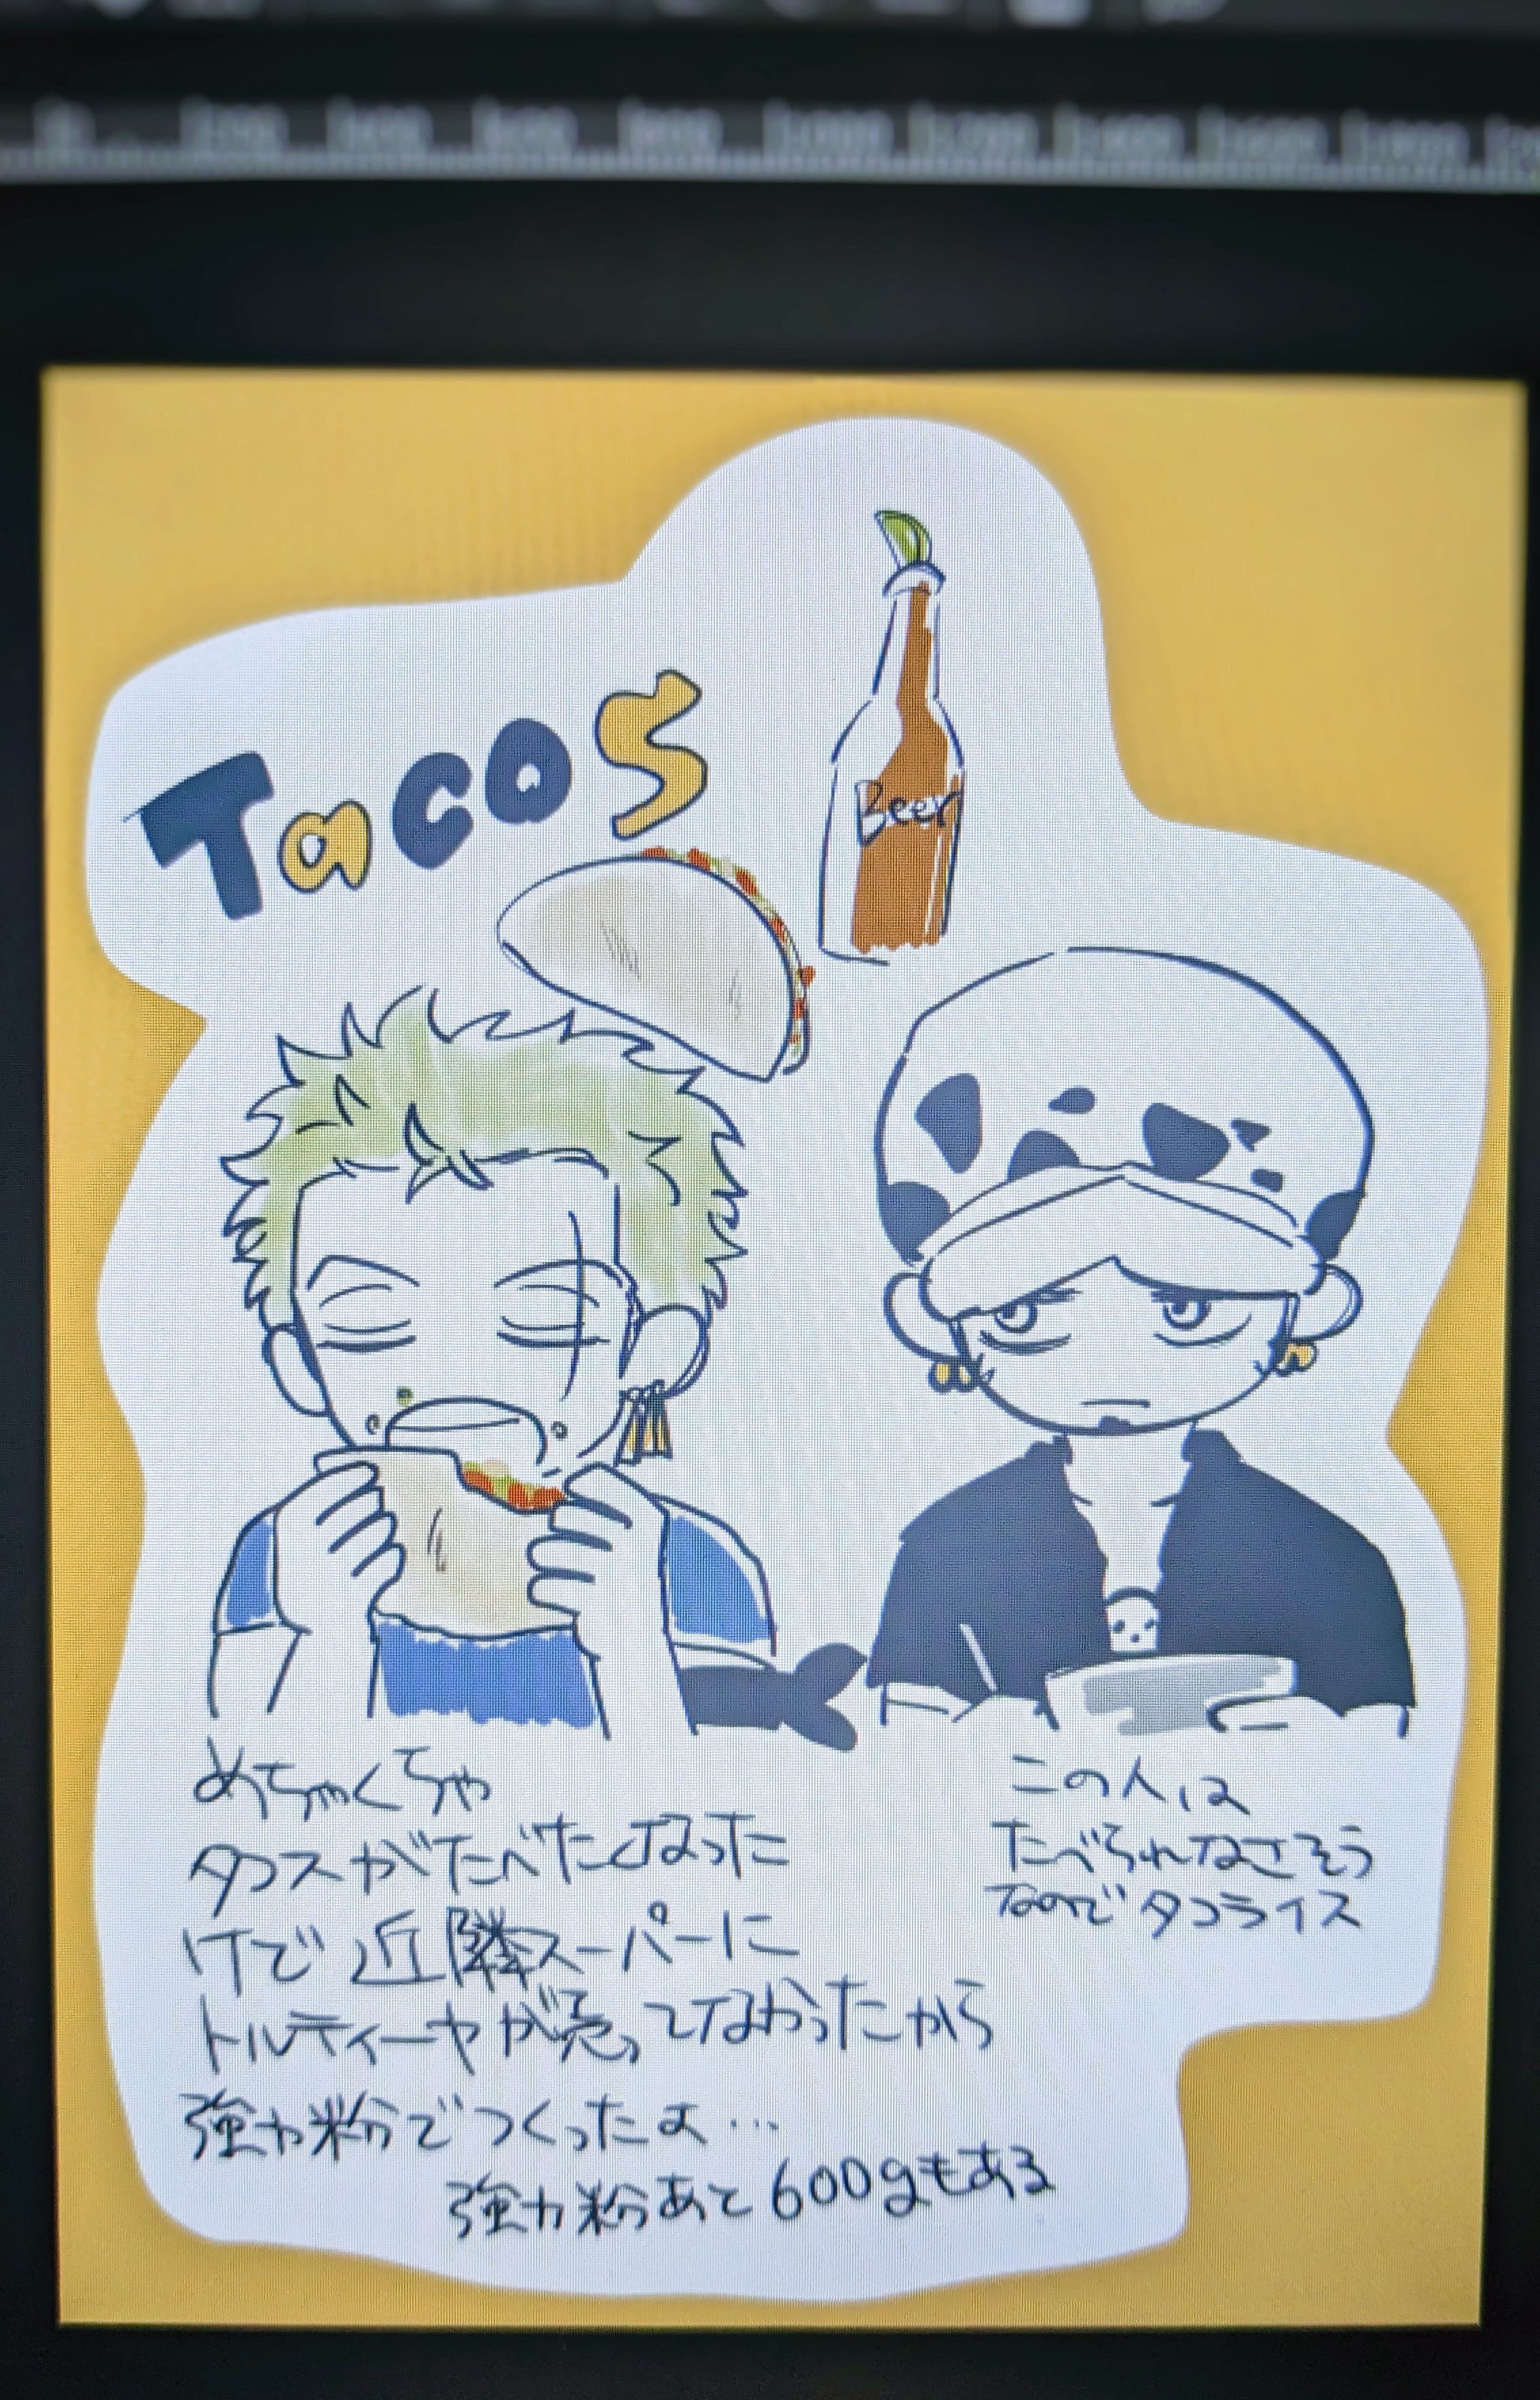 Tacos
Beer
めちゃくちゃ
タコスがたべたくなった
けど近隣スーパーに
トルティーヤが売ってなかったから
強力粉でつくったよ…
強力粉あと600gもある
この人は
たべられなさそう
なのでタコライス